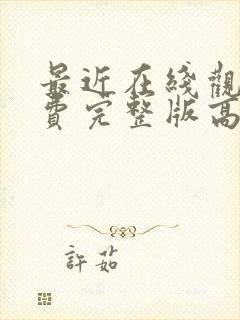 最近在线觀
費完整版高
許茹